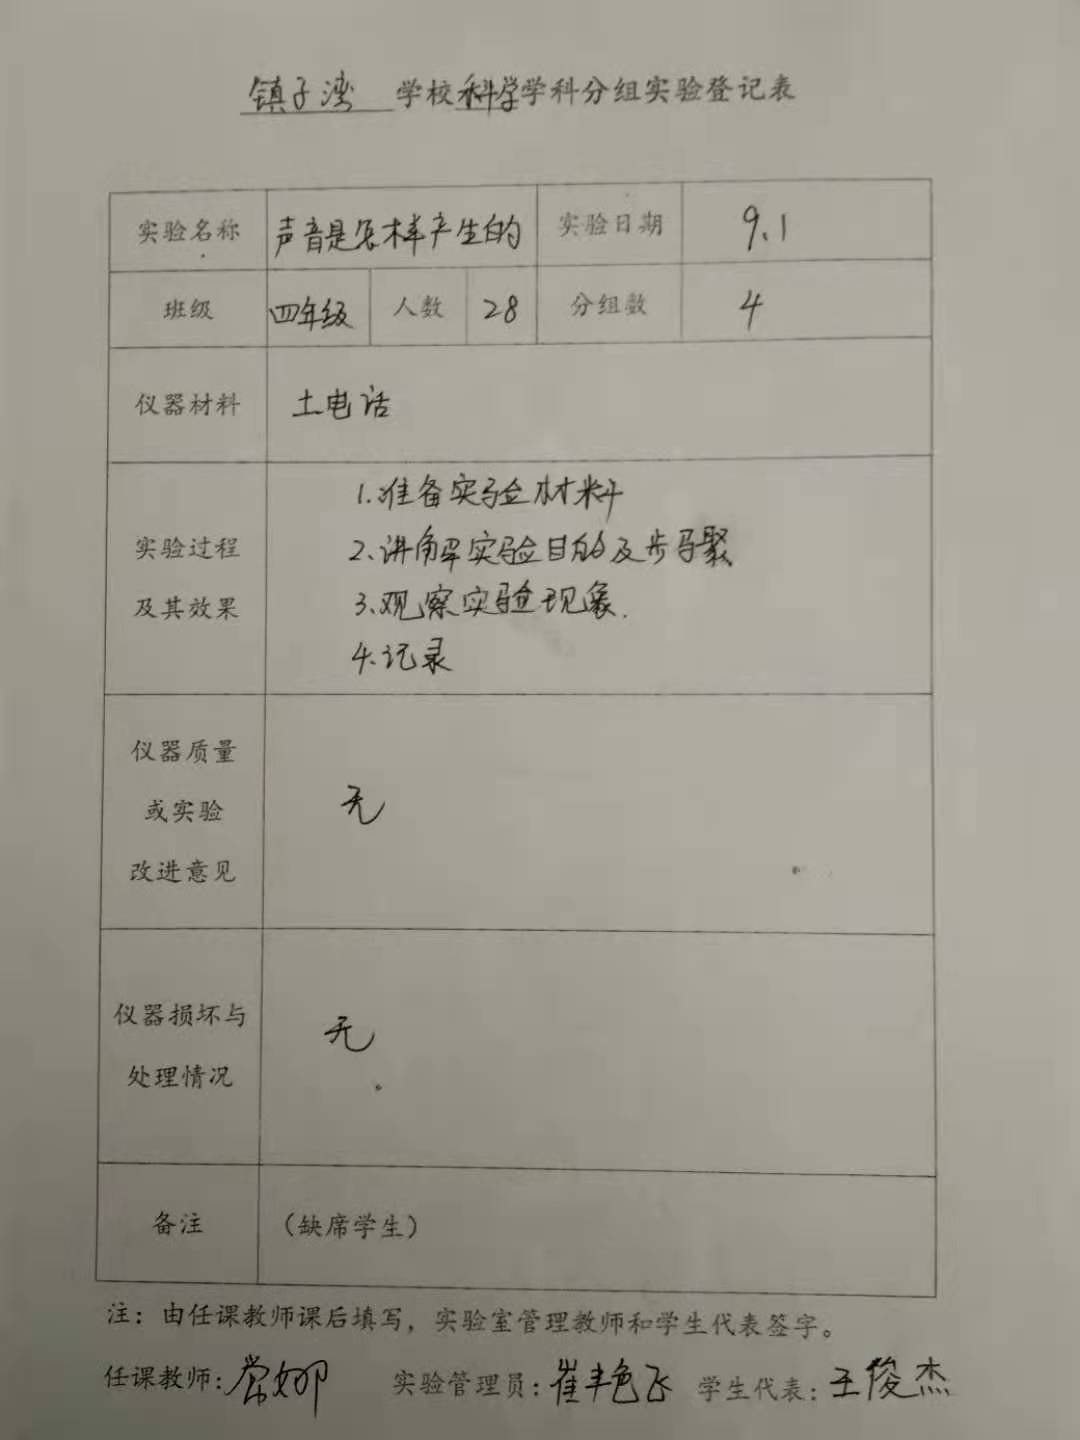 镇子湾 学校科学学科分组实验登记表
实验名称 声音是怎样产生的 实验日期 9.1
班级 四年级 人数 28 分组数 4
仪器材料 土电话
实验过程
及其效果
1.准备实验材料
2.讲解实验目的及步骤
3.观察实验现象.
4.记录
仪器质量
或实验
改进意见
无
仪器损坏与
处理情况
无
备注 (缺席学生)
注：由任课教师课后填写，实验室管理教师和学生代表签字。
任课教师:常娜 实验管理员:崔艳飞 学生代表:王俊杰